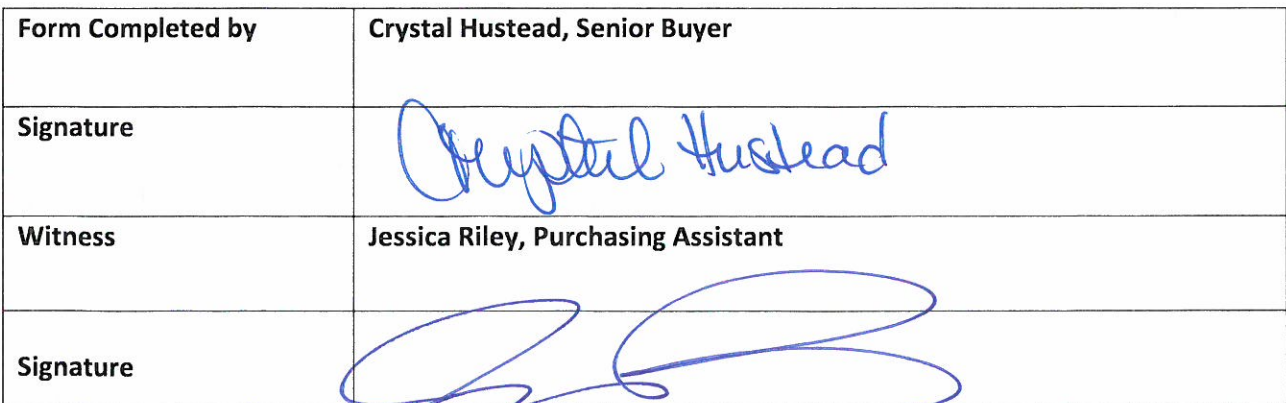 Form Completed by
Crystal Hustead, Senior Buyer
Signature
Crystal Hustead
Witness
Jessica Riley, Purchasing Assistant
Signature